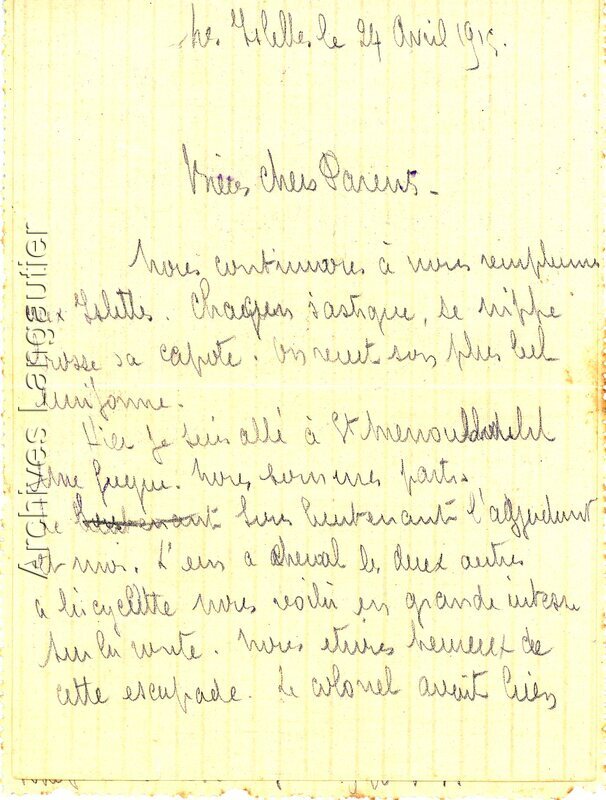 Les Islettes le 24 Avril 1915.
Bien chers Parents -
Nous continuons à nous remplumer
aux Islettes. Chacun s'astique, se nippe
brosse sa capote. On revêt son plus bel
uniforme.
Hier je suis allé à Ste Menould
Nous sommes partis
le lieutenant sous lieutenant l'adjudant
et moi. L'un a cheval les deux autres
a bicyclette nous voilà en grande vitesse
sur la route. Nous étions heureux de
cette escapade. Le colonel avait bien
Archives Langoutier